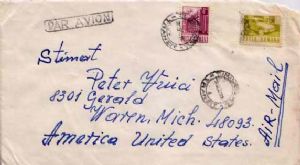 PAR AVION
Stimat
Peter
8301 Gerald
Waren, Mich. 48093.
America United States.
AIR MAIL